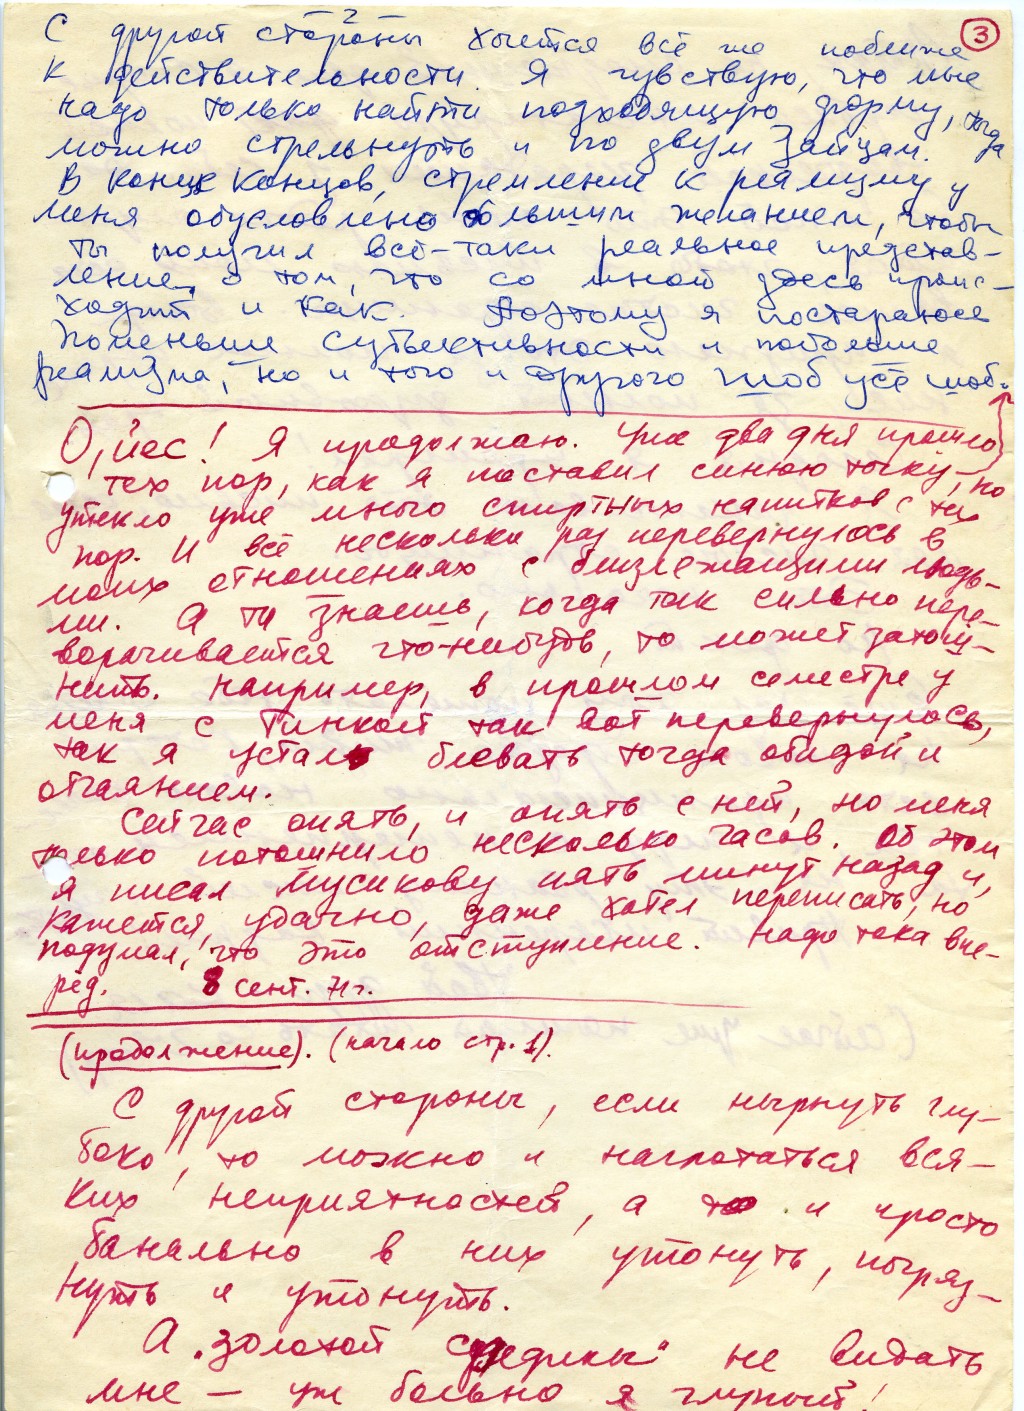 3
С другой стороны хочется всё же поближе
к действительности. Я чувствую, что мне
надо только найти подходящую форму, тогда
можно стрельнуть и по двум зайцам.
В конце концов, стремление к реализму у
меня обусловлено большим желанием, чтобы
ты получил всё-таки реальное представ-
ление о том, что со мной здесь проис-
ходит и как. Поэтому я постараюсь
поменьше субъективности и побольше
реализма, но и того и другого шоб усё шоб.
О, йес! Я продолжаю. Уже два дня прошло
с тех пор, как я поставил синюю точку, но
утекло уже много спиртных напитков с тех
пор. И всё несколько раз перевернулось в
моих отношениях с близлежащими людь-
ми. А ты знаешь, когда так сильно пере-
ворачивается что-нибудь, то может затош-
нить. Например, в прошлом семестре у
меня с Тинкой так вот перевернулось,
так я устал блевать тогда обидой и
отчаянием.
Сейчас опять, и опять с ней, но меня
только потошнило несколько часов. Об этом
я писал Мусикову пять минут назад и,
кажется, удачно, даже хотел переписать, но
подумал, что это отступление. Надо тока впе-
рёд. 8 сент. 71г.
(продолжение). (начало стр. 1).
С другой стороны, если нырнуть глу-
боко, то можно и наглотаться вся-
ких неприятностей, а то и просто
банально в них утонуть, погряз-
нуть и утонуть.
А „золотой средины" не видать
мне — уж больно я глупый!